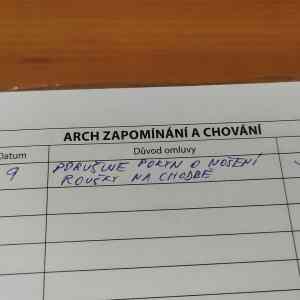 ARCH ZAPOMÍNÁNÍ A CHOVÁNÍ
Datum Důvod omluvy
9 PORUŠUJE POKYN O NOŠENÍ
ROUŠKY NA CHODBĚ